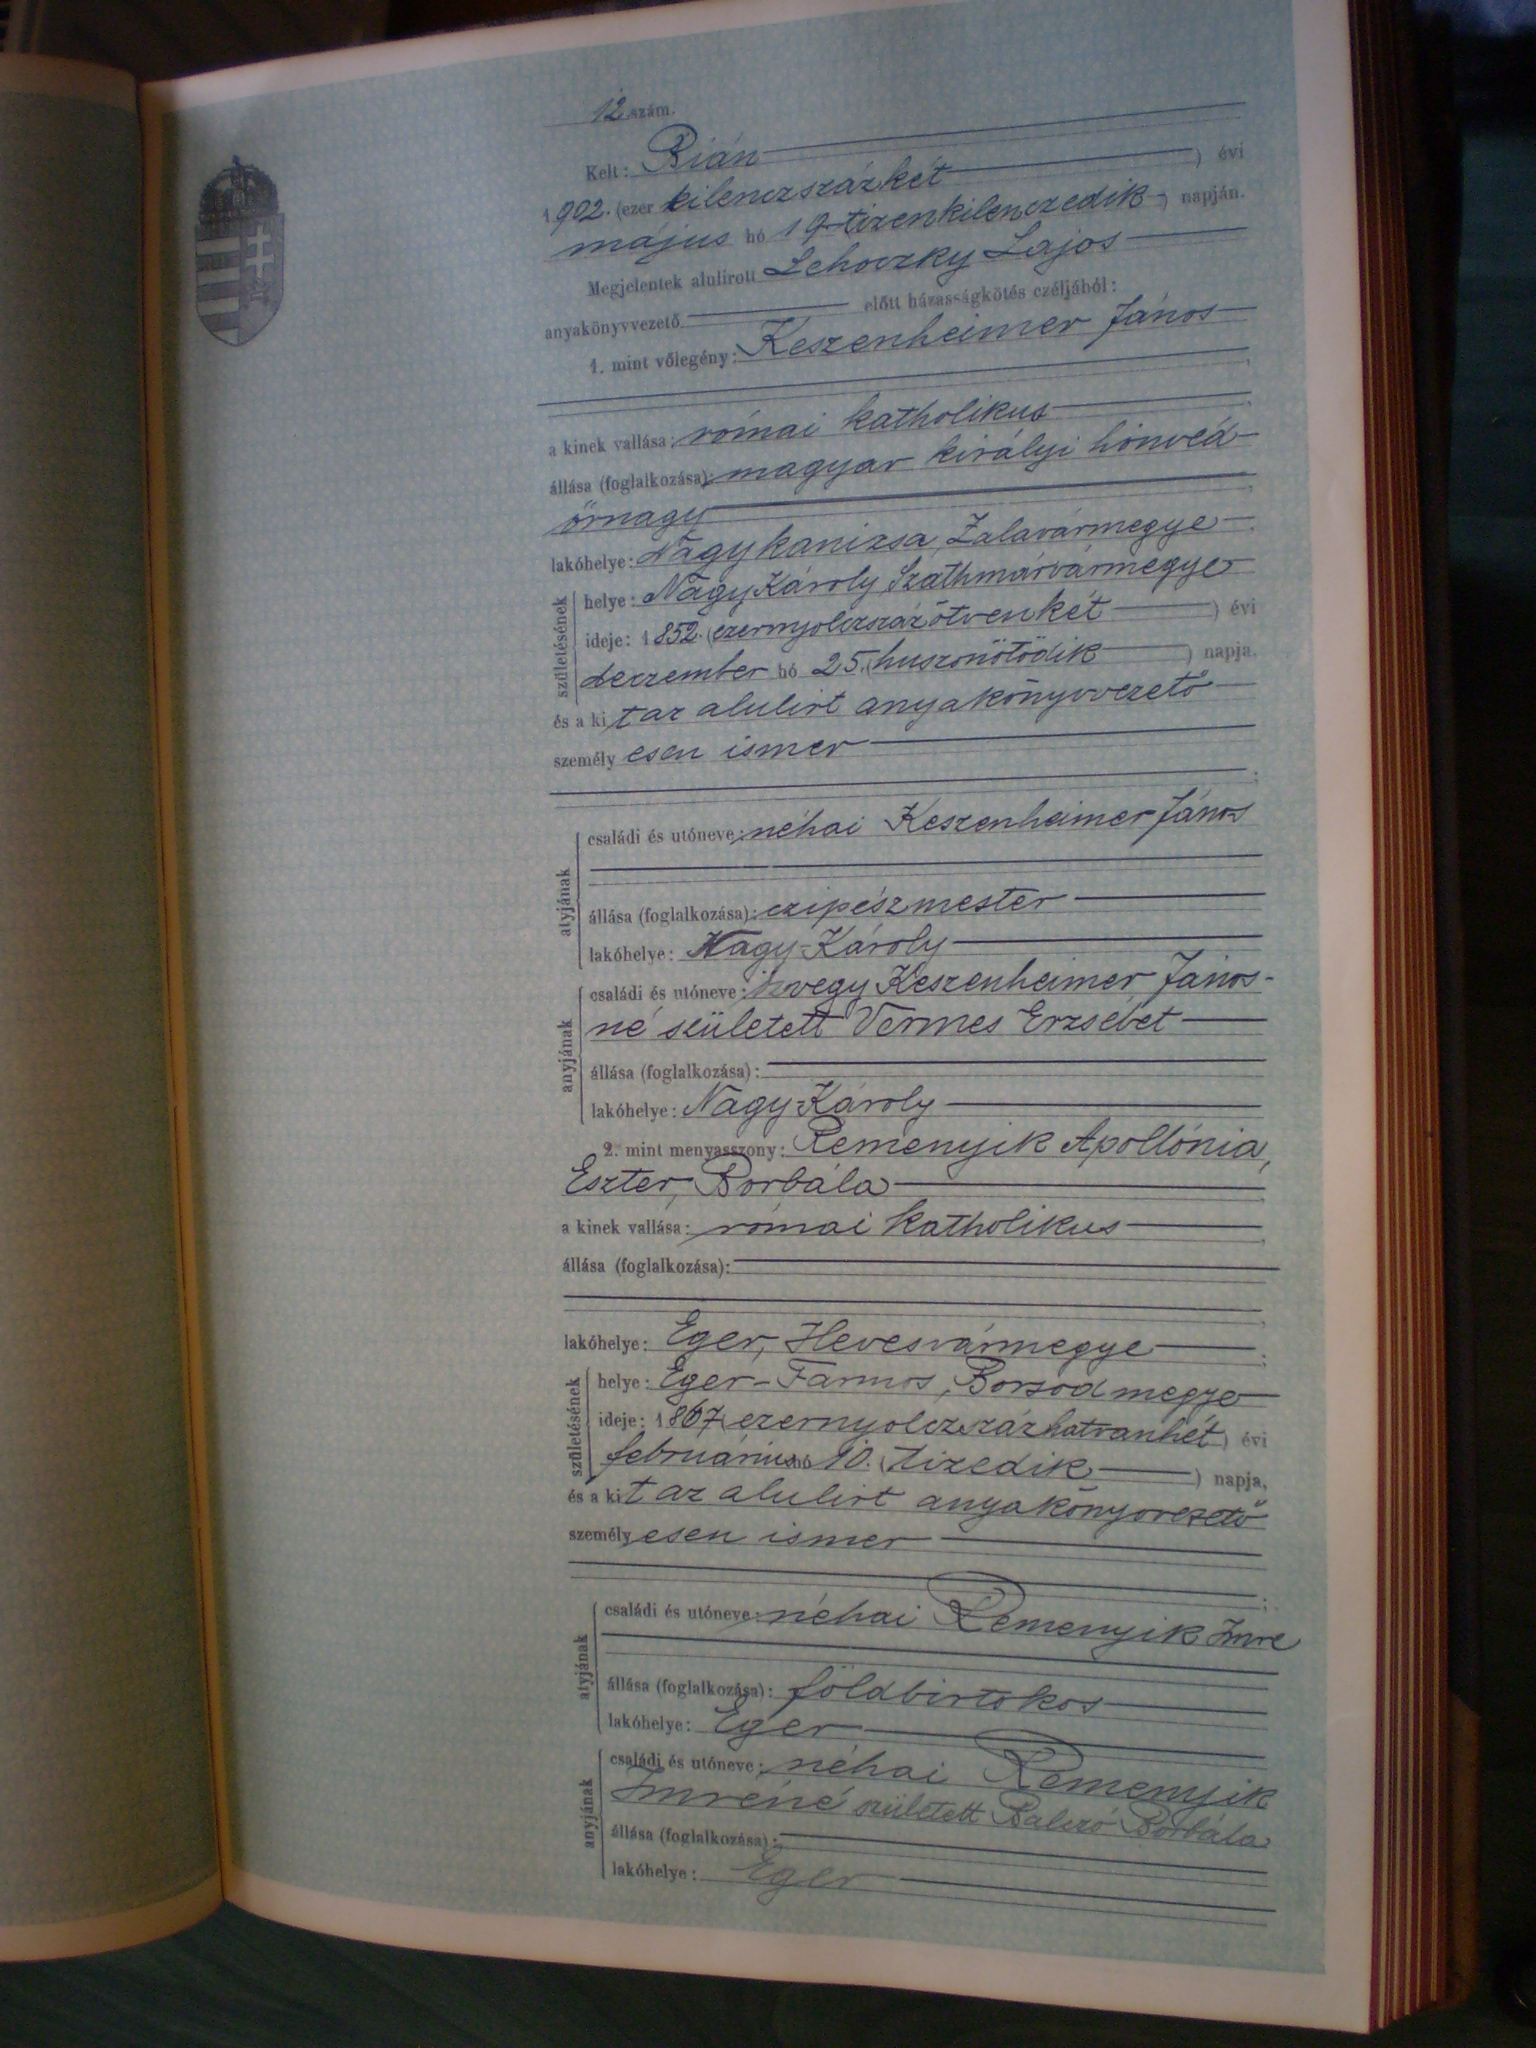 12 szám.
Kelt: Bián
1902. (ezer kilenczszázkét ) évi
május hó 19 tizenkilenczedik ) napján.
Megjelentek alulirott Lehoczky Lajos
anyakönyvvezető előtt házasságkötés czéljából:
1. mint vőlegény: Keszenheimer János
a kinek vallása: római katholikus
állása (foglalkozása): magyar királyi honvéd
őrnagy
lakóhelye: Nagykanizsa, Zalavármegye
születésének
helye: Nagy Károly Szathmárvármegye
ideje: 1852. (ezernyolczszázötvenkét ) évi
deczember hó 25. (huszonötödik ) napja.
és a kit az alulirt anyakönyvvezető
személyesen ismer
atyjának
családi és utóneve: néhai Keszenheimer János
állása (foglalkozása): czipészmester
lakóhelye: Nagy-Károly
anyjának
családi és utóneve: özvegy Keszenheimer János-
né született Vermes Erzsébet
állása (foglalkozása):
lakóhelye: Nagy-Károly
2. mint menyasszony: Remenyik Apollónia,
Eszter, Borbála
a kinek vallása: római katholikus
állása (foglalkozása):
lakóhelye: Eger, Hevesvármegye
születésének
helye: Eger-Farmos, Borsodmegye
ideje: 1867 (ezernyolczszázhatvanhét ) évi
februárius hó 10. (tizedik ) napja,
és a kit az alulirt anyakönyvvezető
személyesen ismer
atyjának
családi és utóneve: néhai Remenyik Imre
állása (foglalkozása): földbirtokos
lakóhelye: Eger
anyjának
családi és utóneve: néhai Remenyik
Imréné született Balczó Borbála
állása (foglalkozása):
lakóhelye: Eger